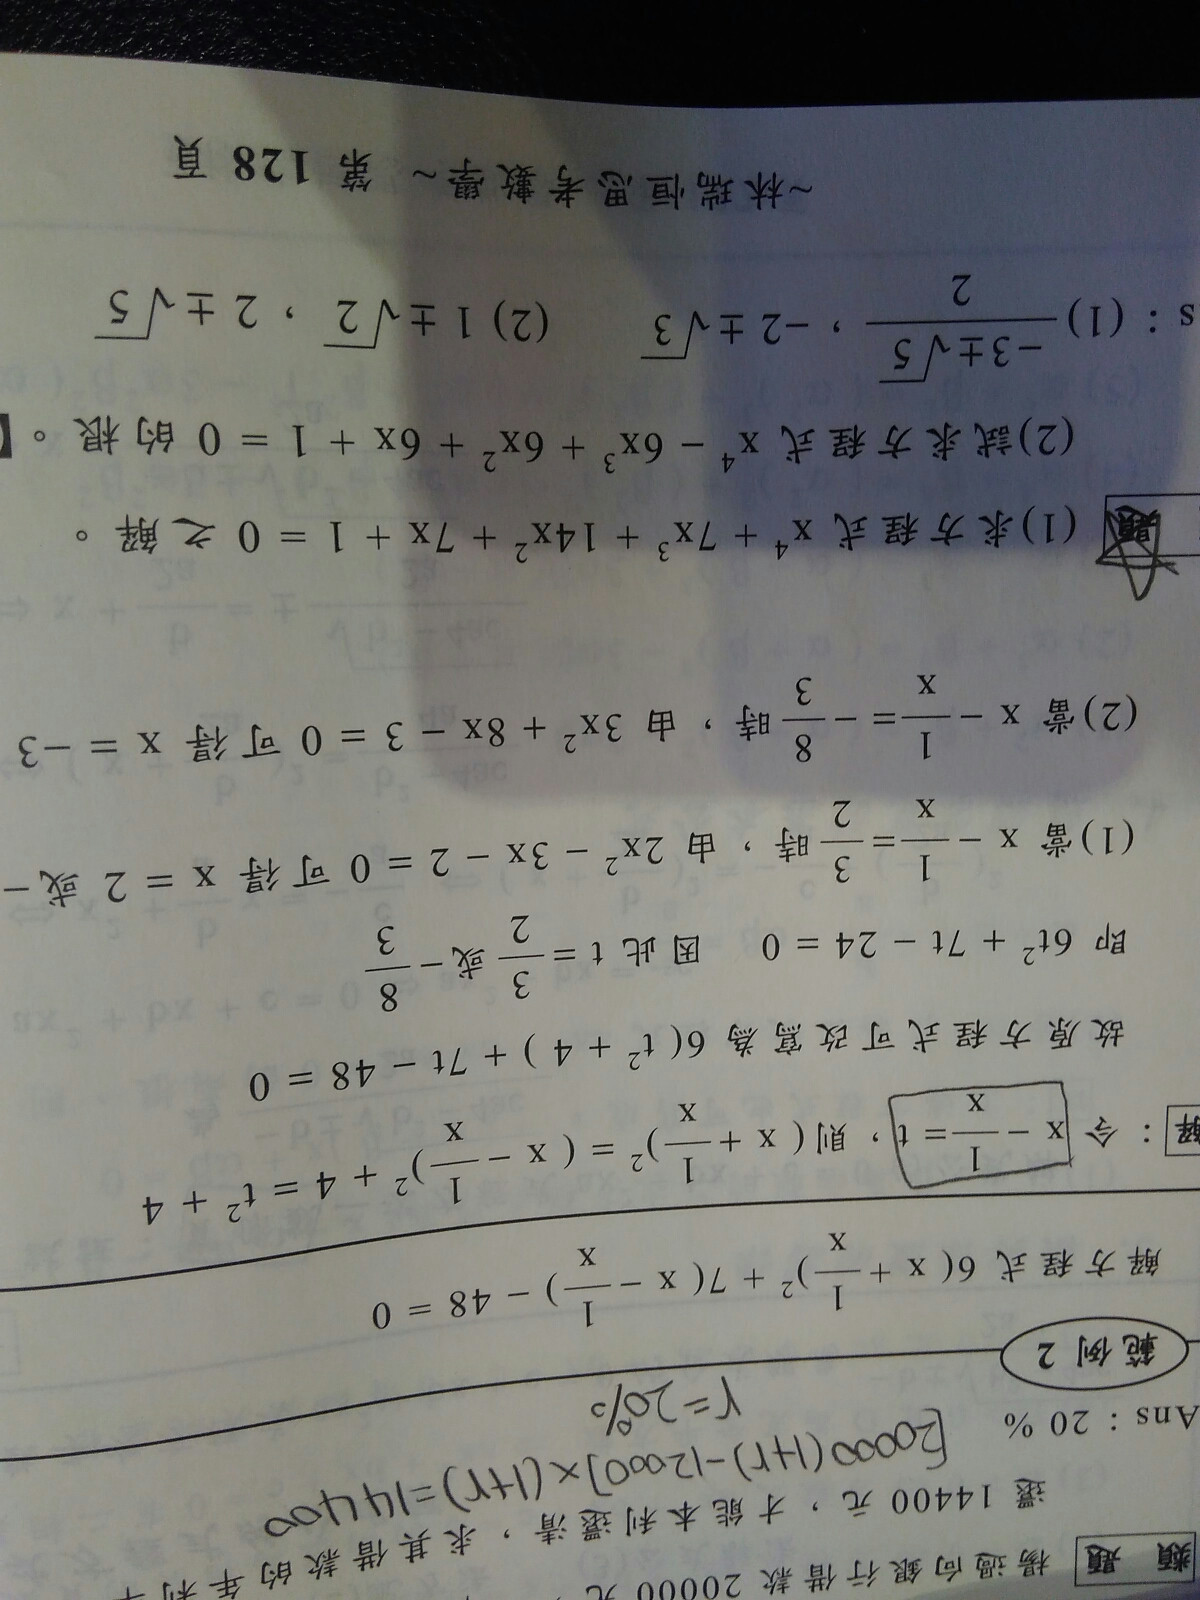 類 題 楊過向銀行借款 20000 元,
還 14400 元,才能本利還清,求其借款的年利
[20000(1+r)-12000]×(1+r)=14400
Ans:20 %
r=20%
範例 2
解方程式 6( x + 1/x )² + 7( x − 1/x ) − 48 = 0
解:令 x − 1/x = t,則( x + 1/x )² = ( x − 1/x )² + 4 = t² + 4
故原方程式可改寫為 6( t² + 4 ) + 7t − 48 = 0
即 6t² + 7t − 24 = 0 因此 t = 3/2 或 − 8/3
(1)當 x − 1/x = 3/2 時,由 2x² − 3x − 2 = 0 可得 x = 2 或 −
(2)當 x − 1/x = − 8/3 時,由 3x² + 8x − 3 = 0 可得 x = −3
題 (1)求方程式 x⁴ + 7x³ + 14x² + 7x + 1 = 0 之解。
(2)試求方程式 x⁴ − 6x³ + 6x² + 6x + 1 = 0 的根。【
s:(1) (−3±√5)/2,−2 ± √3 (2) 1 ± √2,2 ± √5
~林瑞恒思考數學~ 第 128 頁